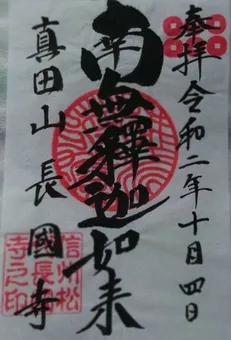 奉拝 令和二年十月四日
南無釋迦如来
真田山 長國寺
信州松
代長国
寺之印